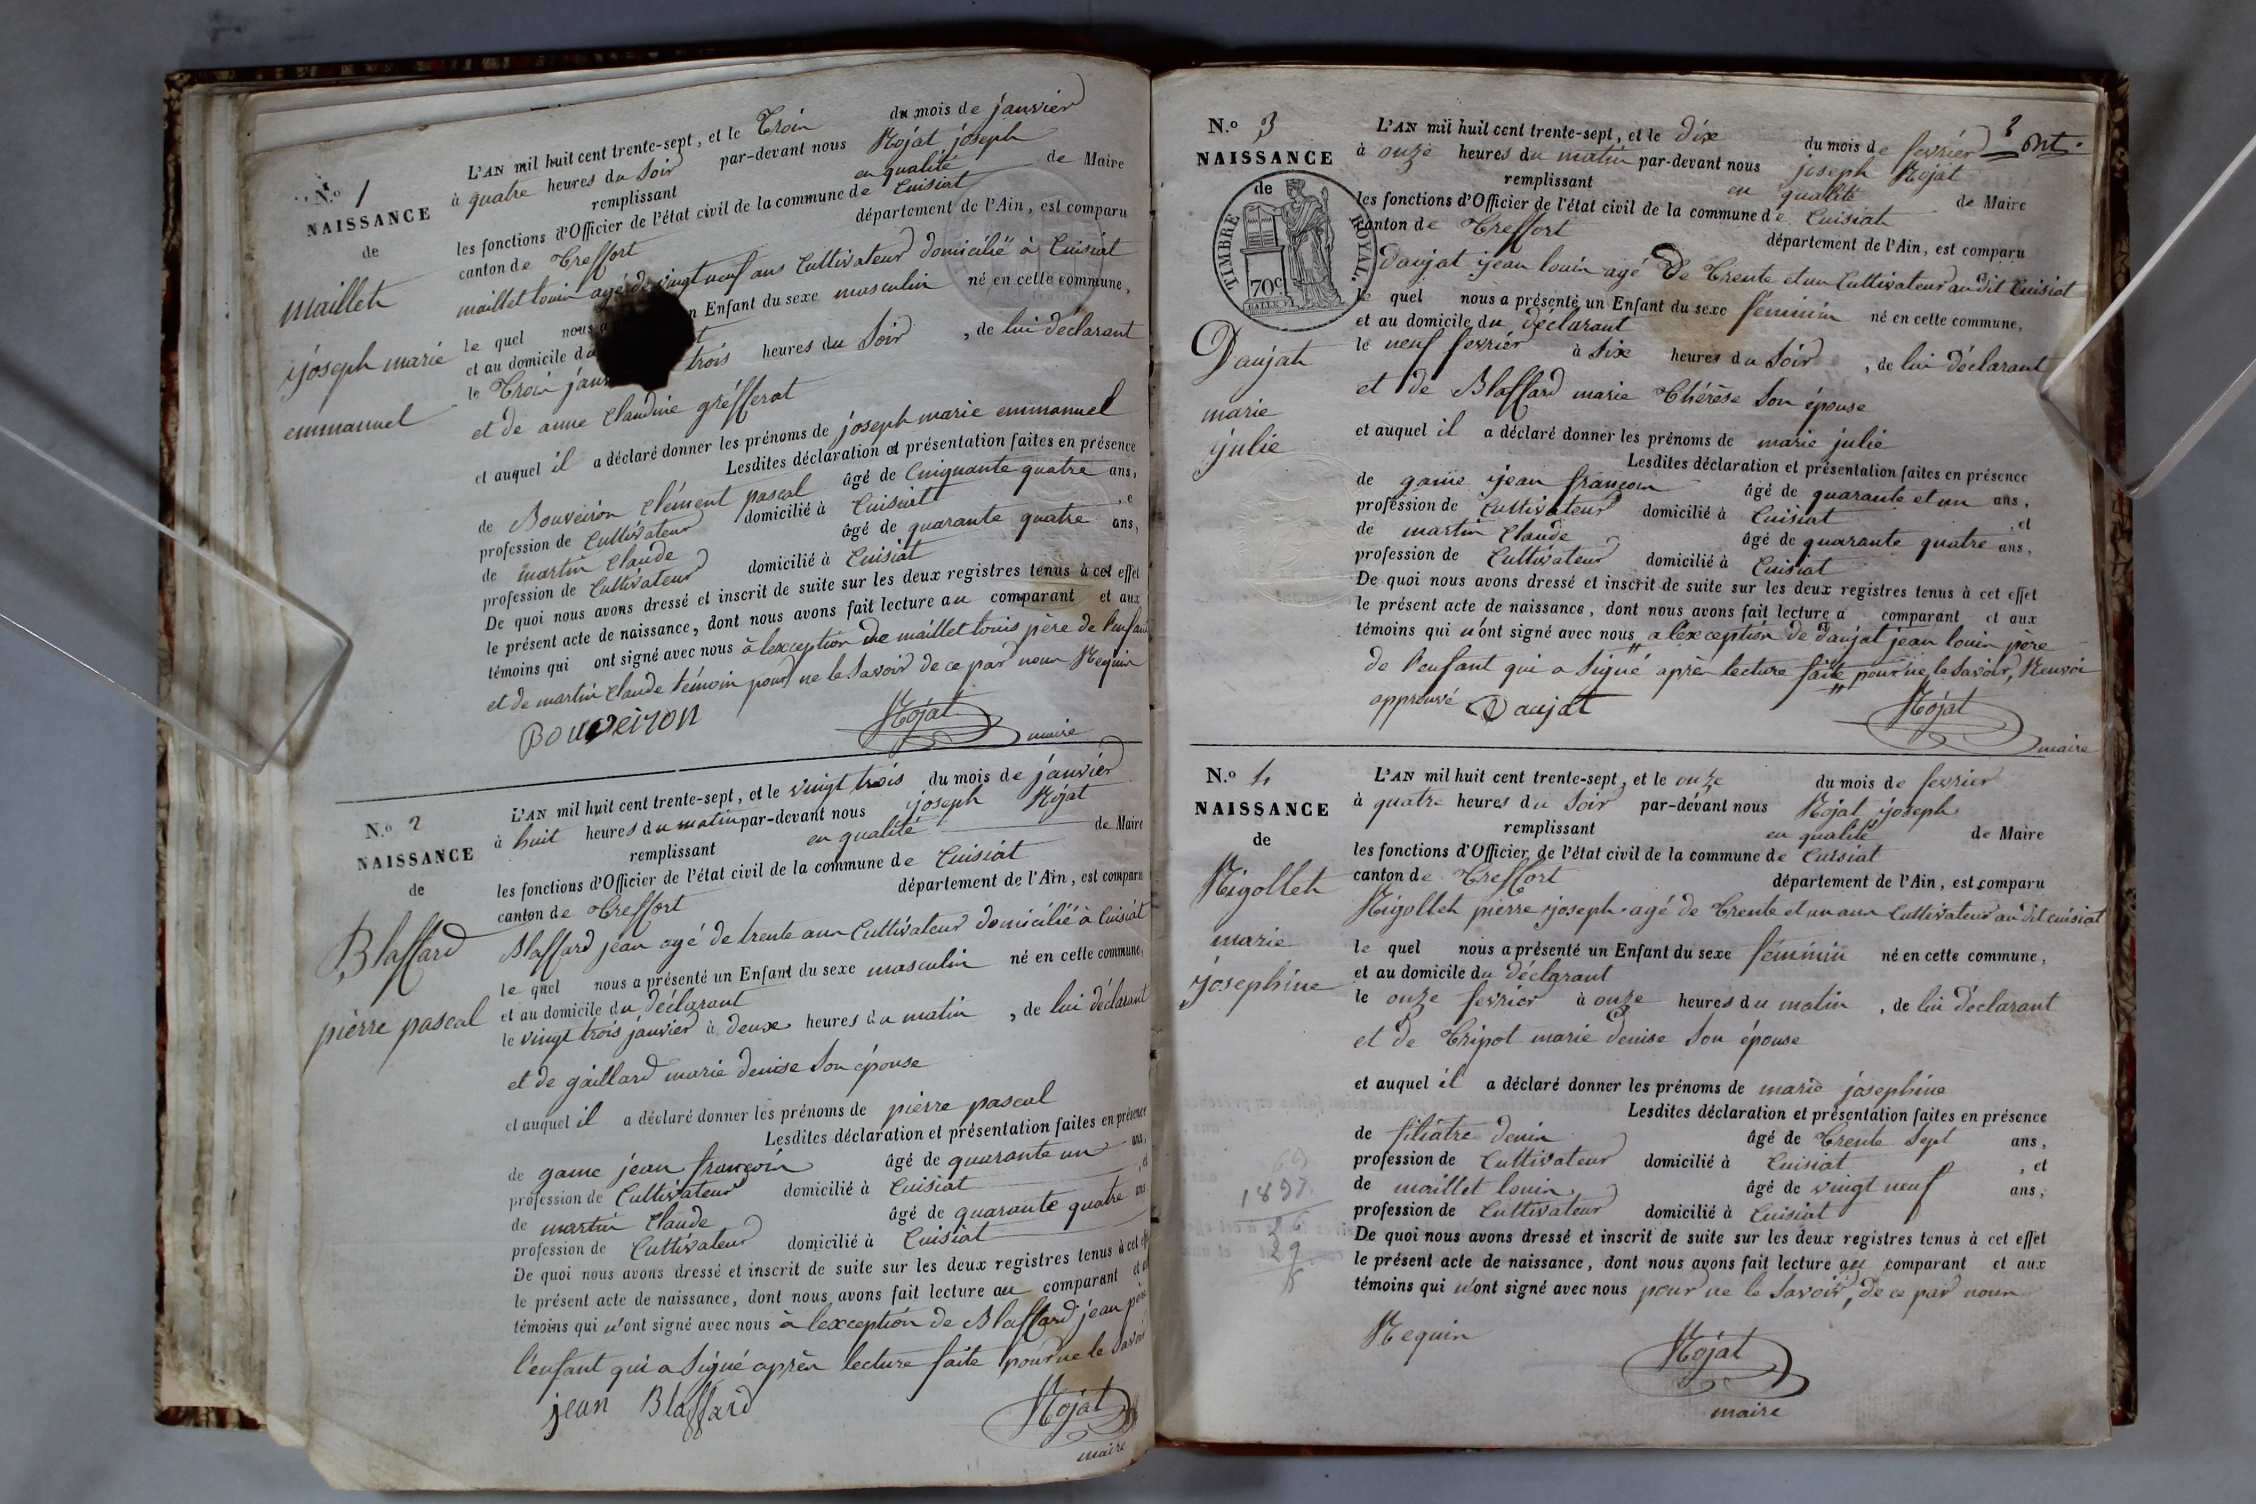 N.º 1
NAISSANCE
de
maillet
joseph marie
emmanuel
L'AN mil huit cent trente-sept, et le Trois du mois de janvier
à quatre heures du soir par-devant nous Rojat joseph
remplissant en qualité de Maire
les fonctions d'Officier de l'état civil de la commune de Cuisiat
canton de Treffort département de l'Ain, est comparu
maillet louis agé de vingt neuf ans Cultivateur domicilié à Cuisiat
le quel nous a n Enfant du sexe masculin né en cette commune,
et au domicile du t
le Trois janv trois heures du Soir, de lui déclarant
et de anne Claudine grefferat
et auquel il a déclaré donner les prénoms de joseph marie emmanuel
Lesdites déclaration et présentation faites en présence
de Bouveiron Clément pascal âgé de Cinquante quatre ans,
profession de Cultivateur domicilié à Cuisiat, e
de martin Claude âgé de quarante quatre ans,
profession de Cultivateur domicilié à Cuisiat
De quoi nous avons dressé et inscrit de suite sur les deux registres tenus à cet effet
le présent acte de naissance, dont nous avons fait lecture au comparant et aux
témoins qui ont signé avec nous à lexception de maillet louis père de l'enfant
et de martin Claude témoin pour ne le Savoir de ce par nous Requis
Bouveiron Rojat
maire
N.º 2
NAISSANCE
de
Blaffard
pierre pascal
L'AN mil huit cent trente-sept, et le vingt trois du mois de janvier
à huit heures du matin par-devant nous joseph Rojat
remplissant en qualité de Maire
les fonctions d'Officier de l'état civil de la commune de Cuisiat
canton de Treffort département de l'Ain, est comparu
Blaffard jean agé de trente ans Cultivateur domicilié à Cuisiat
le quel nous a présenté un Enfant du sexe masculin né en cette commune,
et au domicile du déclarant
le vingt trois janvier à deux heures du matin, de lui déclarant
et de gaillard marie denise Son épouse
et auquel il a déclaré donner les prénoms de pierre pascal
Lesdites déclaration et présentation faites en présence
de game jean françois âgé de quarante un ans,
profession de Cultivateur domicilié à Cuisiat, et
de martin Claude âgé de quarante quatre ans
profession de Cultivateur domicilié à Cuisiat
De quoi nous avons dressé et inscrit de suite sur les deux registres tenus à cet eff
le présent acte de naissance, dont nous avons fait lecture au comparant et a
témoins qui n'ont signé avec nous à lexception de Blaffard jean père
l'enfant qui a Signé après lecture faite pour ne le Savoir
jean Blaffard Rojat
maire
2
N.º 3
NAISSANCE
de
TIMBRE ROYAL.
70c
Daujat
marie
julie
L'AN mil huit cent trente-sept, et le dix du mois de fevrier
à onze heures du matin par-devant nous joseph Rojat
remplissant en qualité de Maire
les fonctions d'Officier de l'état civil de la commune de Cuisiat
canton de Treffort département de l'Ain, est comparu
Daujat jean louis agé de Trente et un Cultivateur au dit Cuisiat
le quel nous a présenté un Enfant du sexe féminin né en cette commune,
et au domicile du déclarant
le neuf fevrier à Six heures du Soir, de lui déclarant
et de Blaffard marie Thérèse Son épouse
et auquel il a déclaré donner les prénoms de marie julie
Lesdites déclaration et présentation faites en présence
de game jean françois âgé de quarante et un ans,
profession de Cultivateur domicilié à Cuisiat, et
de martin Claude âgé de quarante quatre ans,
profession de Cultivateur domicilié à Cuisiat
De quoi nous avons dressé et inscrit de suite sur les deux registres tenus à cet effet
le présent acte de naissance, dont nous avons fait lecture a comparant et aux
témoins qui n'ont signé avec nous a lexception de Daujat jean louis père
de l'enfant qui a Signé après lecture faite pour ne le Savoir, Renvoi
approuvé Daujat Rojat
maire
N.º 4
NAISSANCE
de
Rigollet
marie
josephine
L'AN mil huit cent trente-sept, et le onze du mois de fevrier
à quatre heures du Soir par-devant nous Rojat joseph
remplissant en qualité de Maire
les fonctions d'Officier de l'état civil de la commune de Cuisiat
canton de Treffort département de l'Ain, est comparu
Rigollet pierre joseph agé de Trente et un ans Cultivateur au dit Cuisiat
le quel nous a présenté un Enfant du sexe féminin né en cette commune,
et au domicile du déclarant
le onze fevrier à onze heures du matin, de lui déclarant
et de Tripot marie denise Son épouse
et auquel il a déclaré donner les prénoms de marie josephine
Lesdites déclaration et présentation faites en présence
de filiatre denis âgé de Trente Sept ans,
profession de Cultivateur domicilié à Cuisiat, et
de maillet louis âgé de vingt neuf ans,
profession de Cultivateur domicilié à Cuisiat
De quoi nous avons dressé et inscrit de suite sur les deux registres tenus à cet effet
le présent acte de naissance, dont nous avons fait lecture au comparant et aux
témoins qui n'ont signé avec nous pour ne le Savoir, de ce par nous
Requis Rojat
maire
1897
29